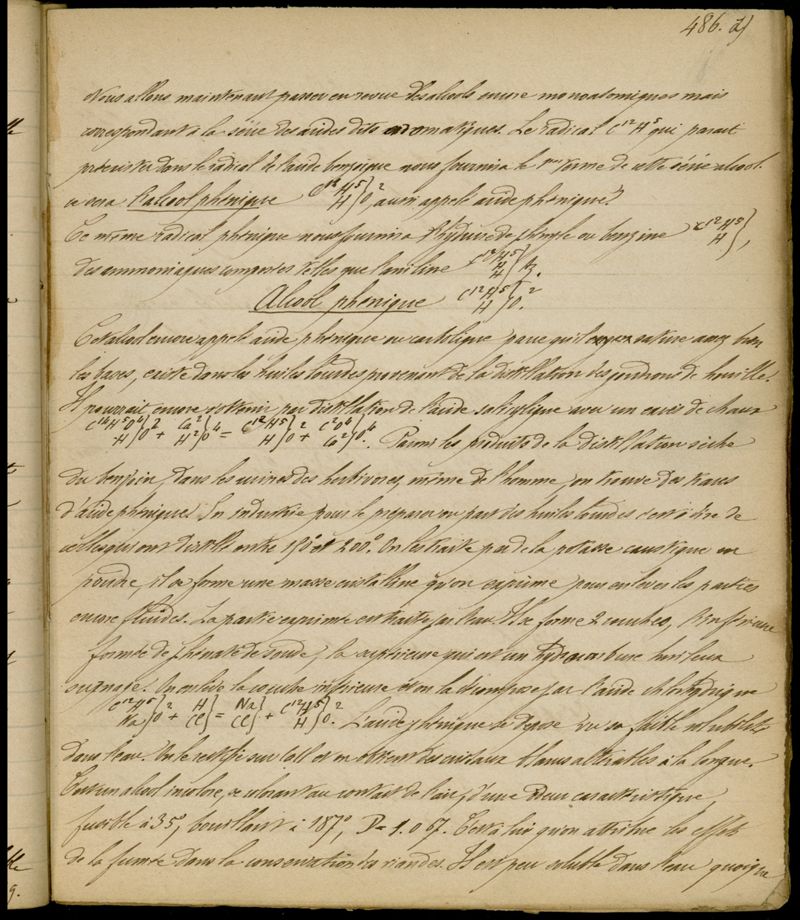 486. 2)
Nous allons maintenant passer en revue des alcools encore monoatomiques mais
correspondant à la série des acides dits aromatiques. Le radical C¹²H⁵ qui parait
préexister dans le radical de l'acide benzoique nous fournira le 1er terme de cette série alcool.
ce sera l'alcool phénique C¹²H⁵ / H } O² aussi appelé acide phénique.
Ce même radical phénique nous fournira l'hydrure de phenyle ou benzine C¹²H⁵ / H },
des ammoniaques composées telles que l'aniline C¹²H⁵ / H / H } Az.
Alcool phénique C¹²H⁵ / H } O².
Cet alcool encore appelé acide phénique ou carbolique parce qu'il sature assez bien
les bases, existe dans les huiles lourdes provenant de la distillation des goudrons de houille.
Il pourrait encore s'obtenir par distillation de l'acide salicylique avec un excès de chaux
C¹⁴H⁵O⁴ / H } O² + Ca² / H² } O⁴ = C¹²H⁵ / H } O² + C²O⁴ / Ca² } O⁴. Parmi les produits de la distillation sèche
du benjoin, dans les urines des herbivores, même de l'homme, on trouve des traces
d'acide phénique. En industrie pour le préparer on part des huiles lourdes c'est à dire de
celles qui ont distillé entre 150° et 200°. On les traite par de la potasse caustique en
poudre, il se forme une masse cristalline qu'on exprime pour enlever les parties
encore fluides. La partie exprimée est traitée par l'eau. Il se forme 2 couches, l'inférieure
formée de phénate de soude, la supérieure qui est un hydrocarbure huileux
surnage. On enlève la couche inférieure et on la décompose par l'acide chlorhydrique
C¹²H⁵ / Na } O² + H / Cl } = Na / Cl } + C¹²H⁵ / H } O². L'acide phénique se dépose vu sa faible solubilité
dans l'eau. On le rectifie sur et on obtient des cristaux blancs altérables à la longue.
C'est un alcool incolore, se colorant au contact de l'air, d'une odeur caractéristique,
fusible à 35°, bouillant à 187°, D = 1.067. C'est à lui qu'on attribue les effets
de la fumée dans la conservation des viandes. Il est peu soluble dans l'eau quoique